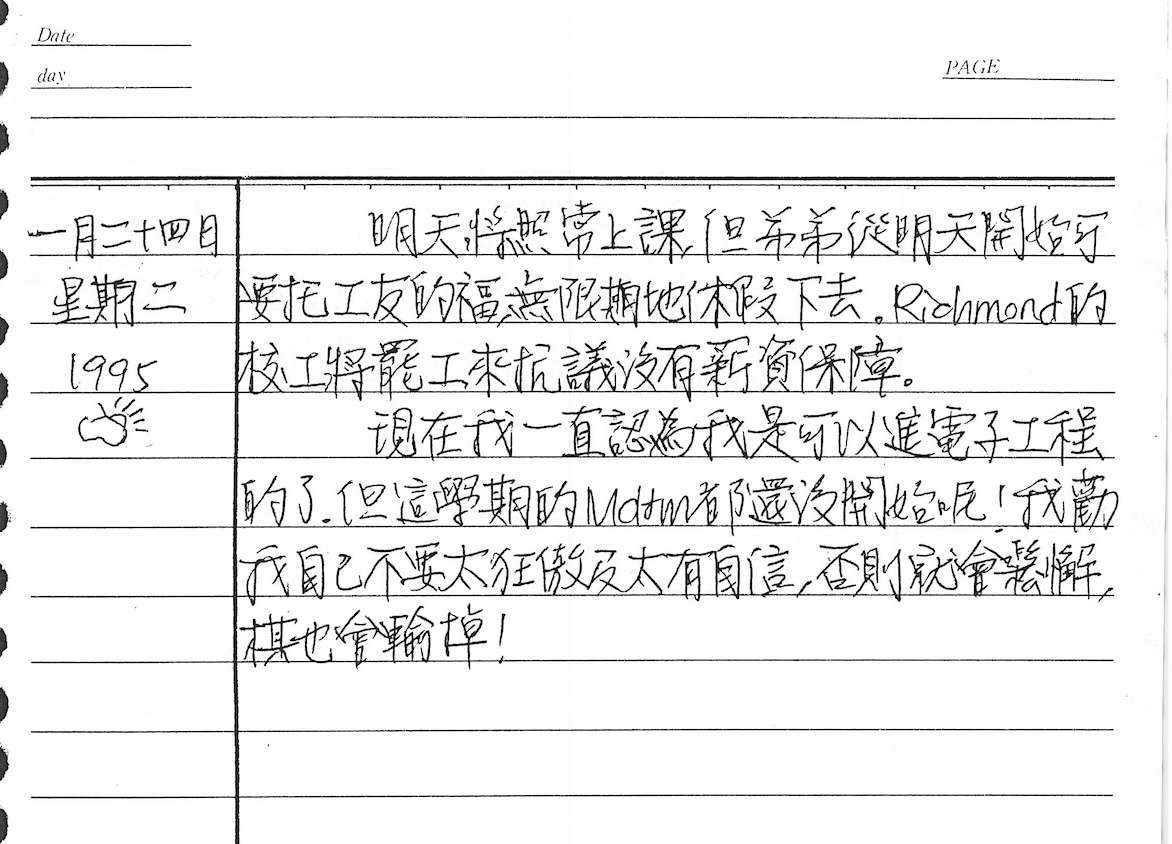 Date
day
PAGE
一月二十四日
星期二
1995
明天將照常上課,但弟弟從明天開始可
要托工友的福,無限期地休假下去。Richmond的
校工將罷工來抗議沒有薪資保障。
現在我一直認為我是可以進電子工程
的了.但這學期的Midterm都還沒開始呢!我勸
我自己不要太狂傲及太有自信,否則就會鬆懈,
棋也會輸掉!